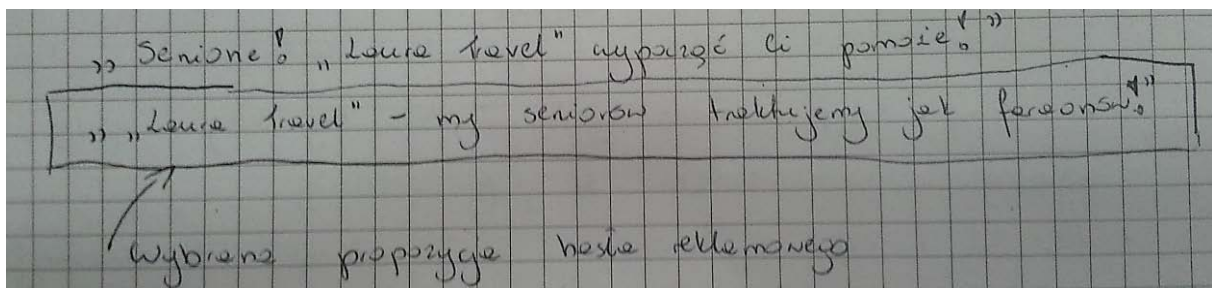 „Seniorze! „Laura travel" wypocząć ci pomoże!”
„„Laura travel" - my seniorów traktujemy jak faraonów!”
Wybrana propozycja hasła reklamowego